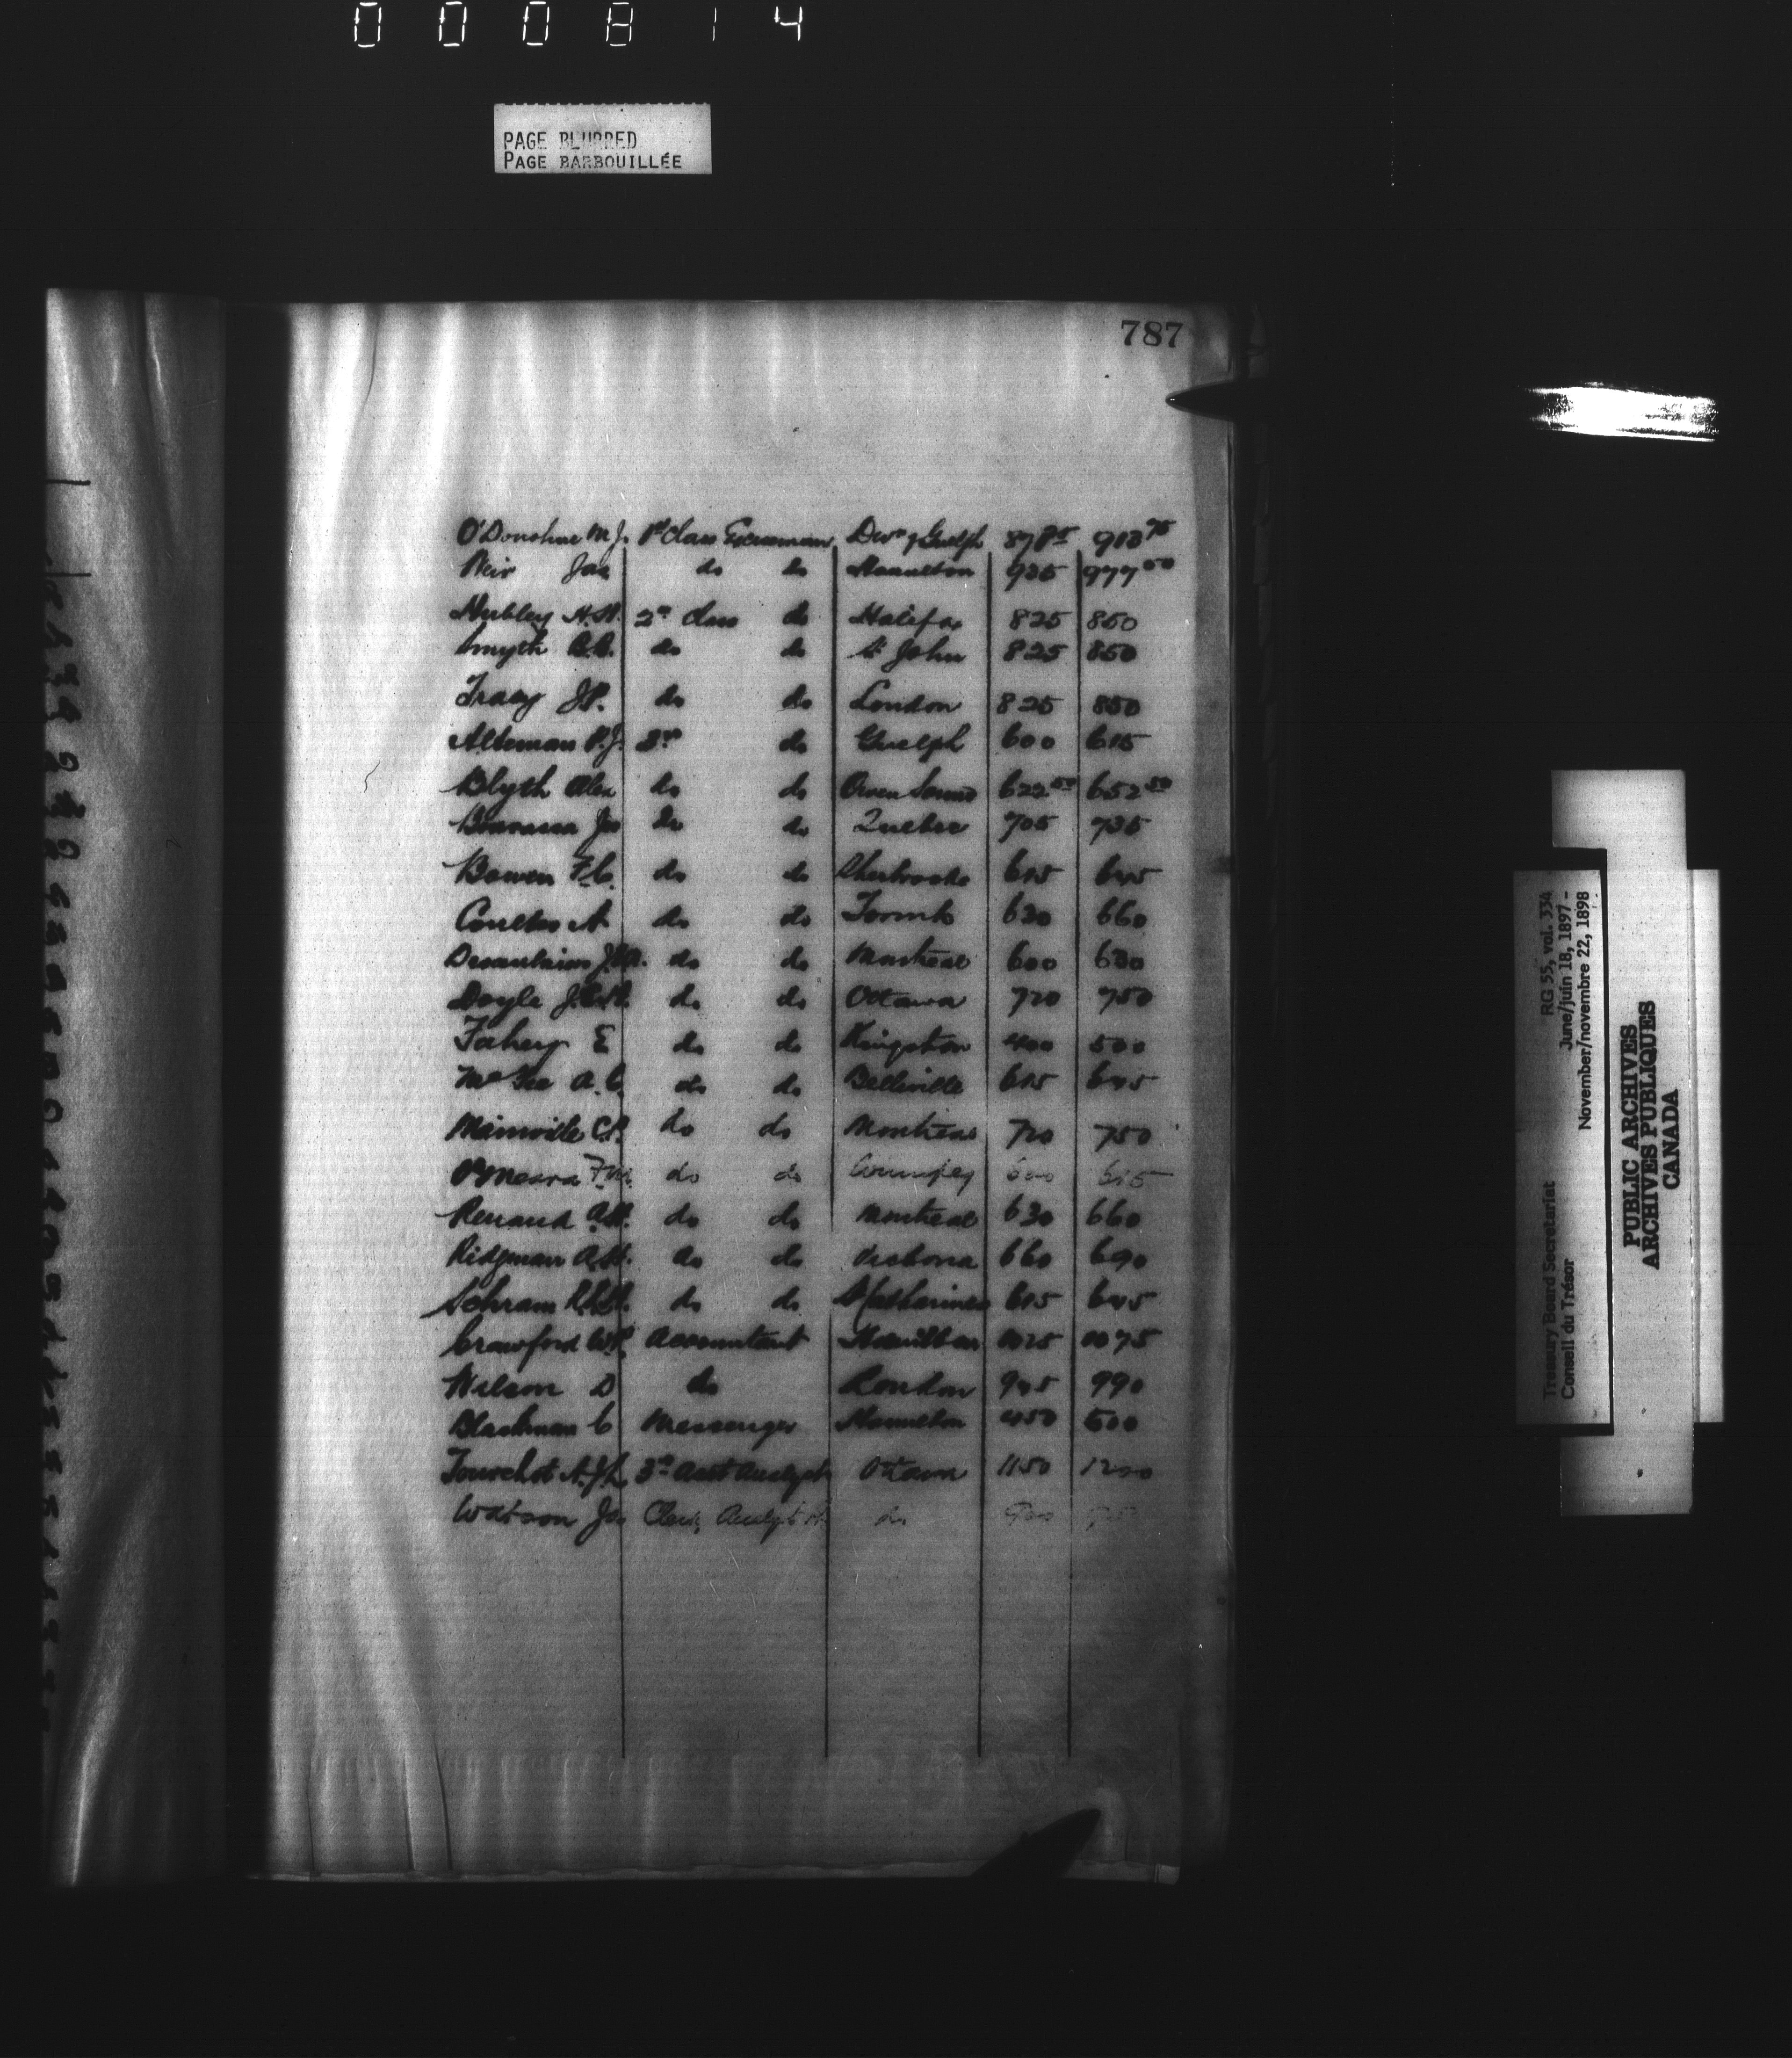 000814
PAGE BLURRED
PAGE BARBOUILLÉE
787
O'Donohue M J. 1st Class Exciseman Divn of Guelph 878 75 913 75
Weir Jas do do Hamilton 935 977 50
Hubley H.H. 2nd Class do Halifax 825 850
Smyth do do St John 825 850
Tracy J P. do do London 825 850
Alteman P.J. 3rd do Guelph 600 615
Blyth Alex do do Owen Sound 622 50 652 50
Bourassa Jos do do Quebec 705 735
Bowen F.C. do do Sherbrooke 615 645
Coulter A do do Toronto 630 660
Desaulniers do do Montreal 600 630
Doyle do do Ottawa 720 750
Fahey E do do Kingston 400 500
McGee A. C do do Belleville 615 645
Mainville C.P. do do Montreal 720 750
O'Meara do do Winnipeg 600 615
Renaud A.H. do do Montreal 630 660
Ridgman A.H. do do Victoria 660 690
Schram do do St Catharines 615 645
Crawford W.P. Accountant Hamilton 1025 1075
Wilson D do London 945 990
Blackman C Messenger Hamilton 450 500
Tourchot A.J.L 3rd Asst Analyst Ottawa 1150 1200
Watson Jas Clerk Analyst do 900
RG 55, vol. 334
June/juin 18, 1897 -
November/novembre 22, 1898
Treasury Board Secretariat
Conseil du Trésor
PUBLIC ARCHIVES
ARCHIVES PUBLIQUES
CANADA